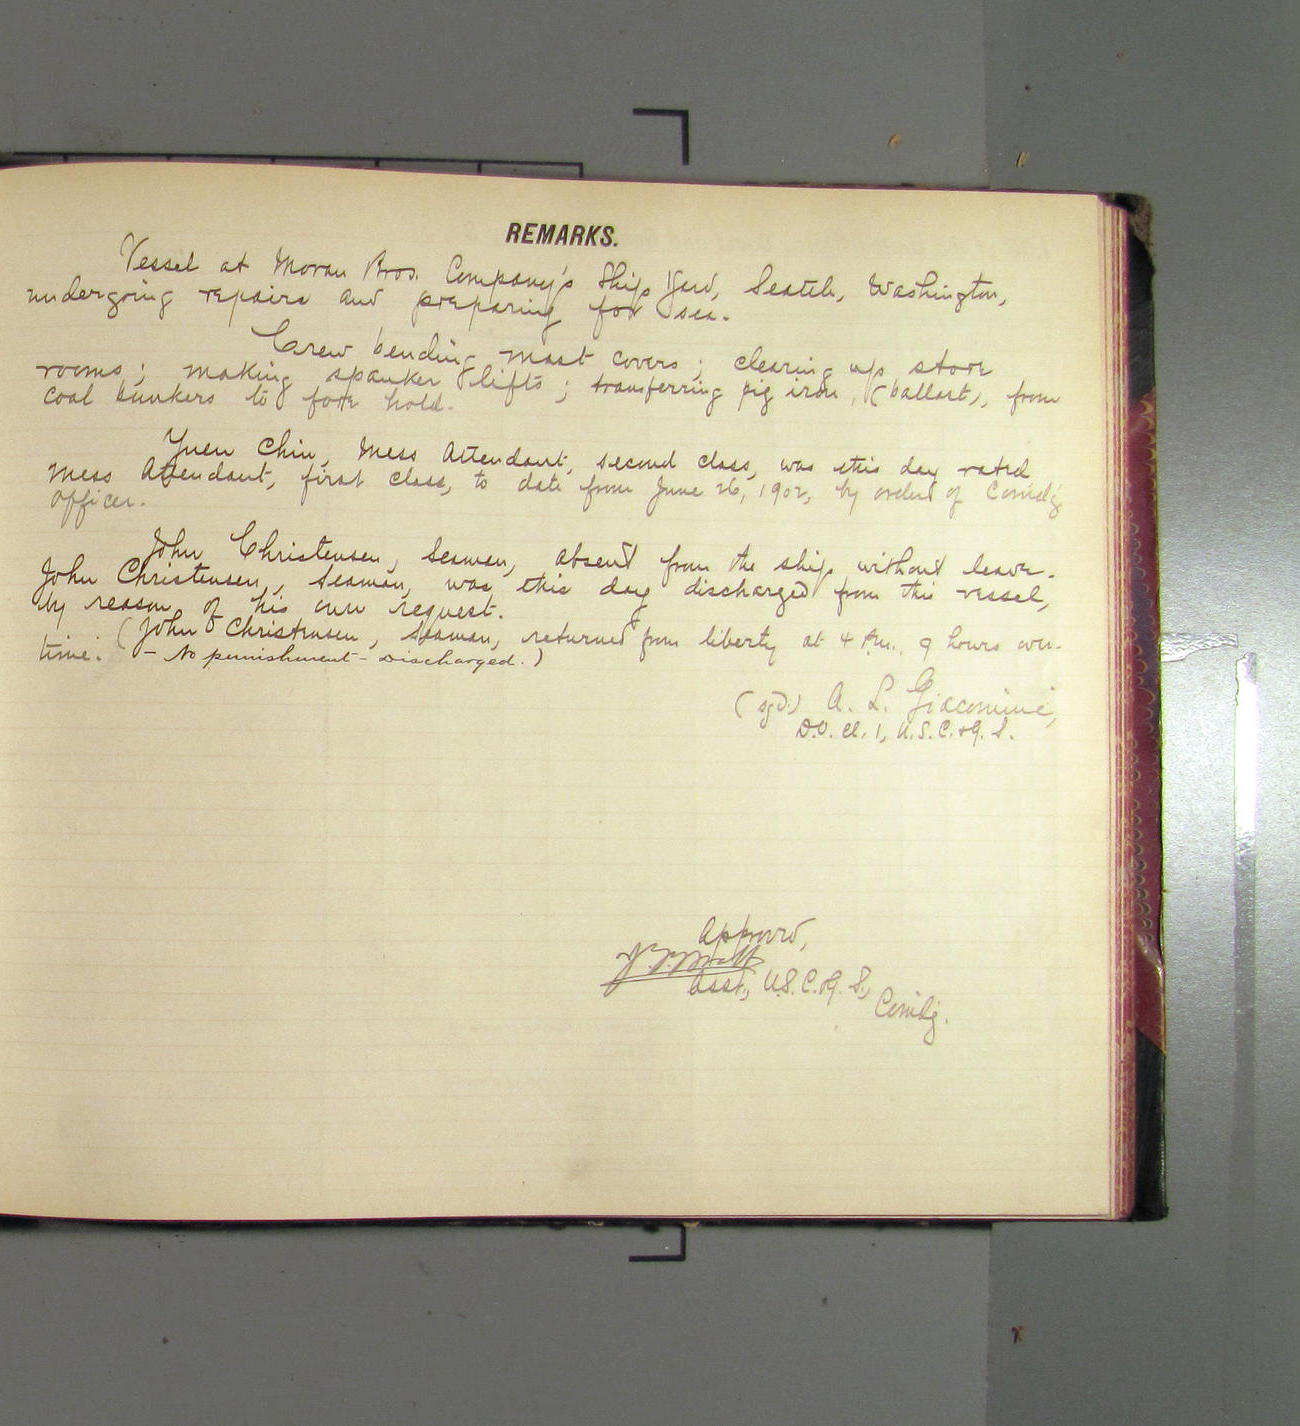 REMARKS.
Vessel at Moran Bros. Company's Ship Yard, Seattle, Washington,
undergoing repairs and preparing for sea.
Crew bending mast covers; clearing up store
rooms; making spanker lifts; transferring pig iron, (ballast), from
coal bunkers to fore hold.
Yuen Chin, Mess Attendant, second class, was this day rated
Mess Attendant, first class, to date from June 26, 1902, by order of Comd'g
Officer.
John Christensen, Seaman, absent from the ship without leave.
John Christensen, Seaman, was this day discharged from this vessel,
by reason of his own request.
(John Christensen, Seaman, returned from liberty at 4 A.m., 9 hours over-
time. - No punishment - Discharged.)
(sg'd.) A. L. Giacomini,
D.O. Cl. 1, U.S.C.&G.S.
Approved,
Asst., U.S.C.&G.S.,
Comd'g.